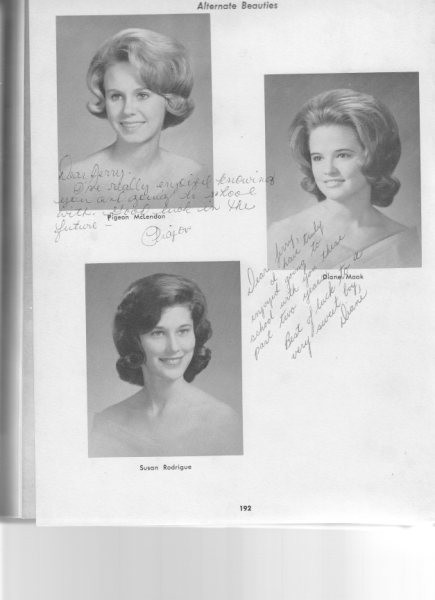 Alternate Beauties
Dear Jerry,
I've really enjoyed knowing
you and going to school
with. Good luck in the
future —
Pigeon
Pigeon McLendon
Dear Jerry,
I have truly
enjoyed going to
school with you these
past two years. To a
very sweet boy,
Best of luck
Diane
Diane Mook
Susan Rodrigue
192